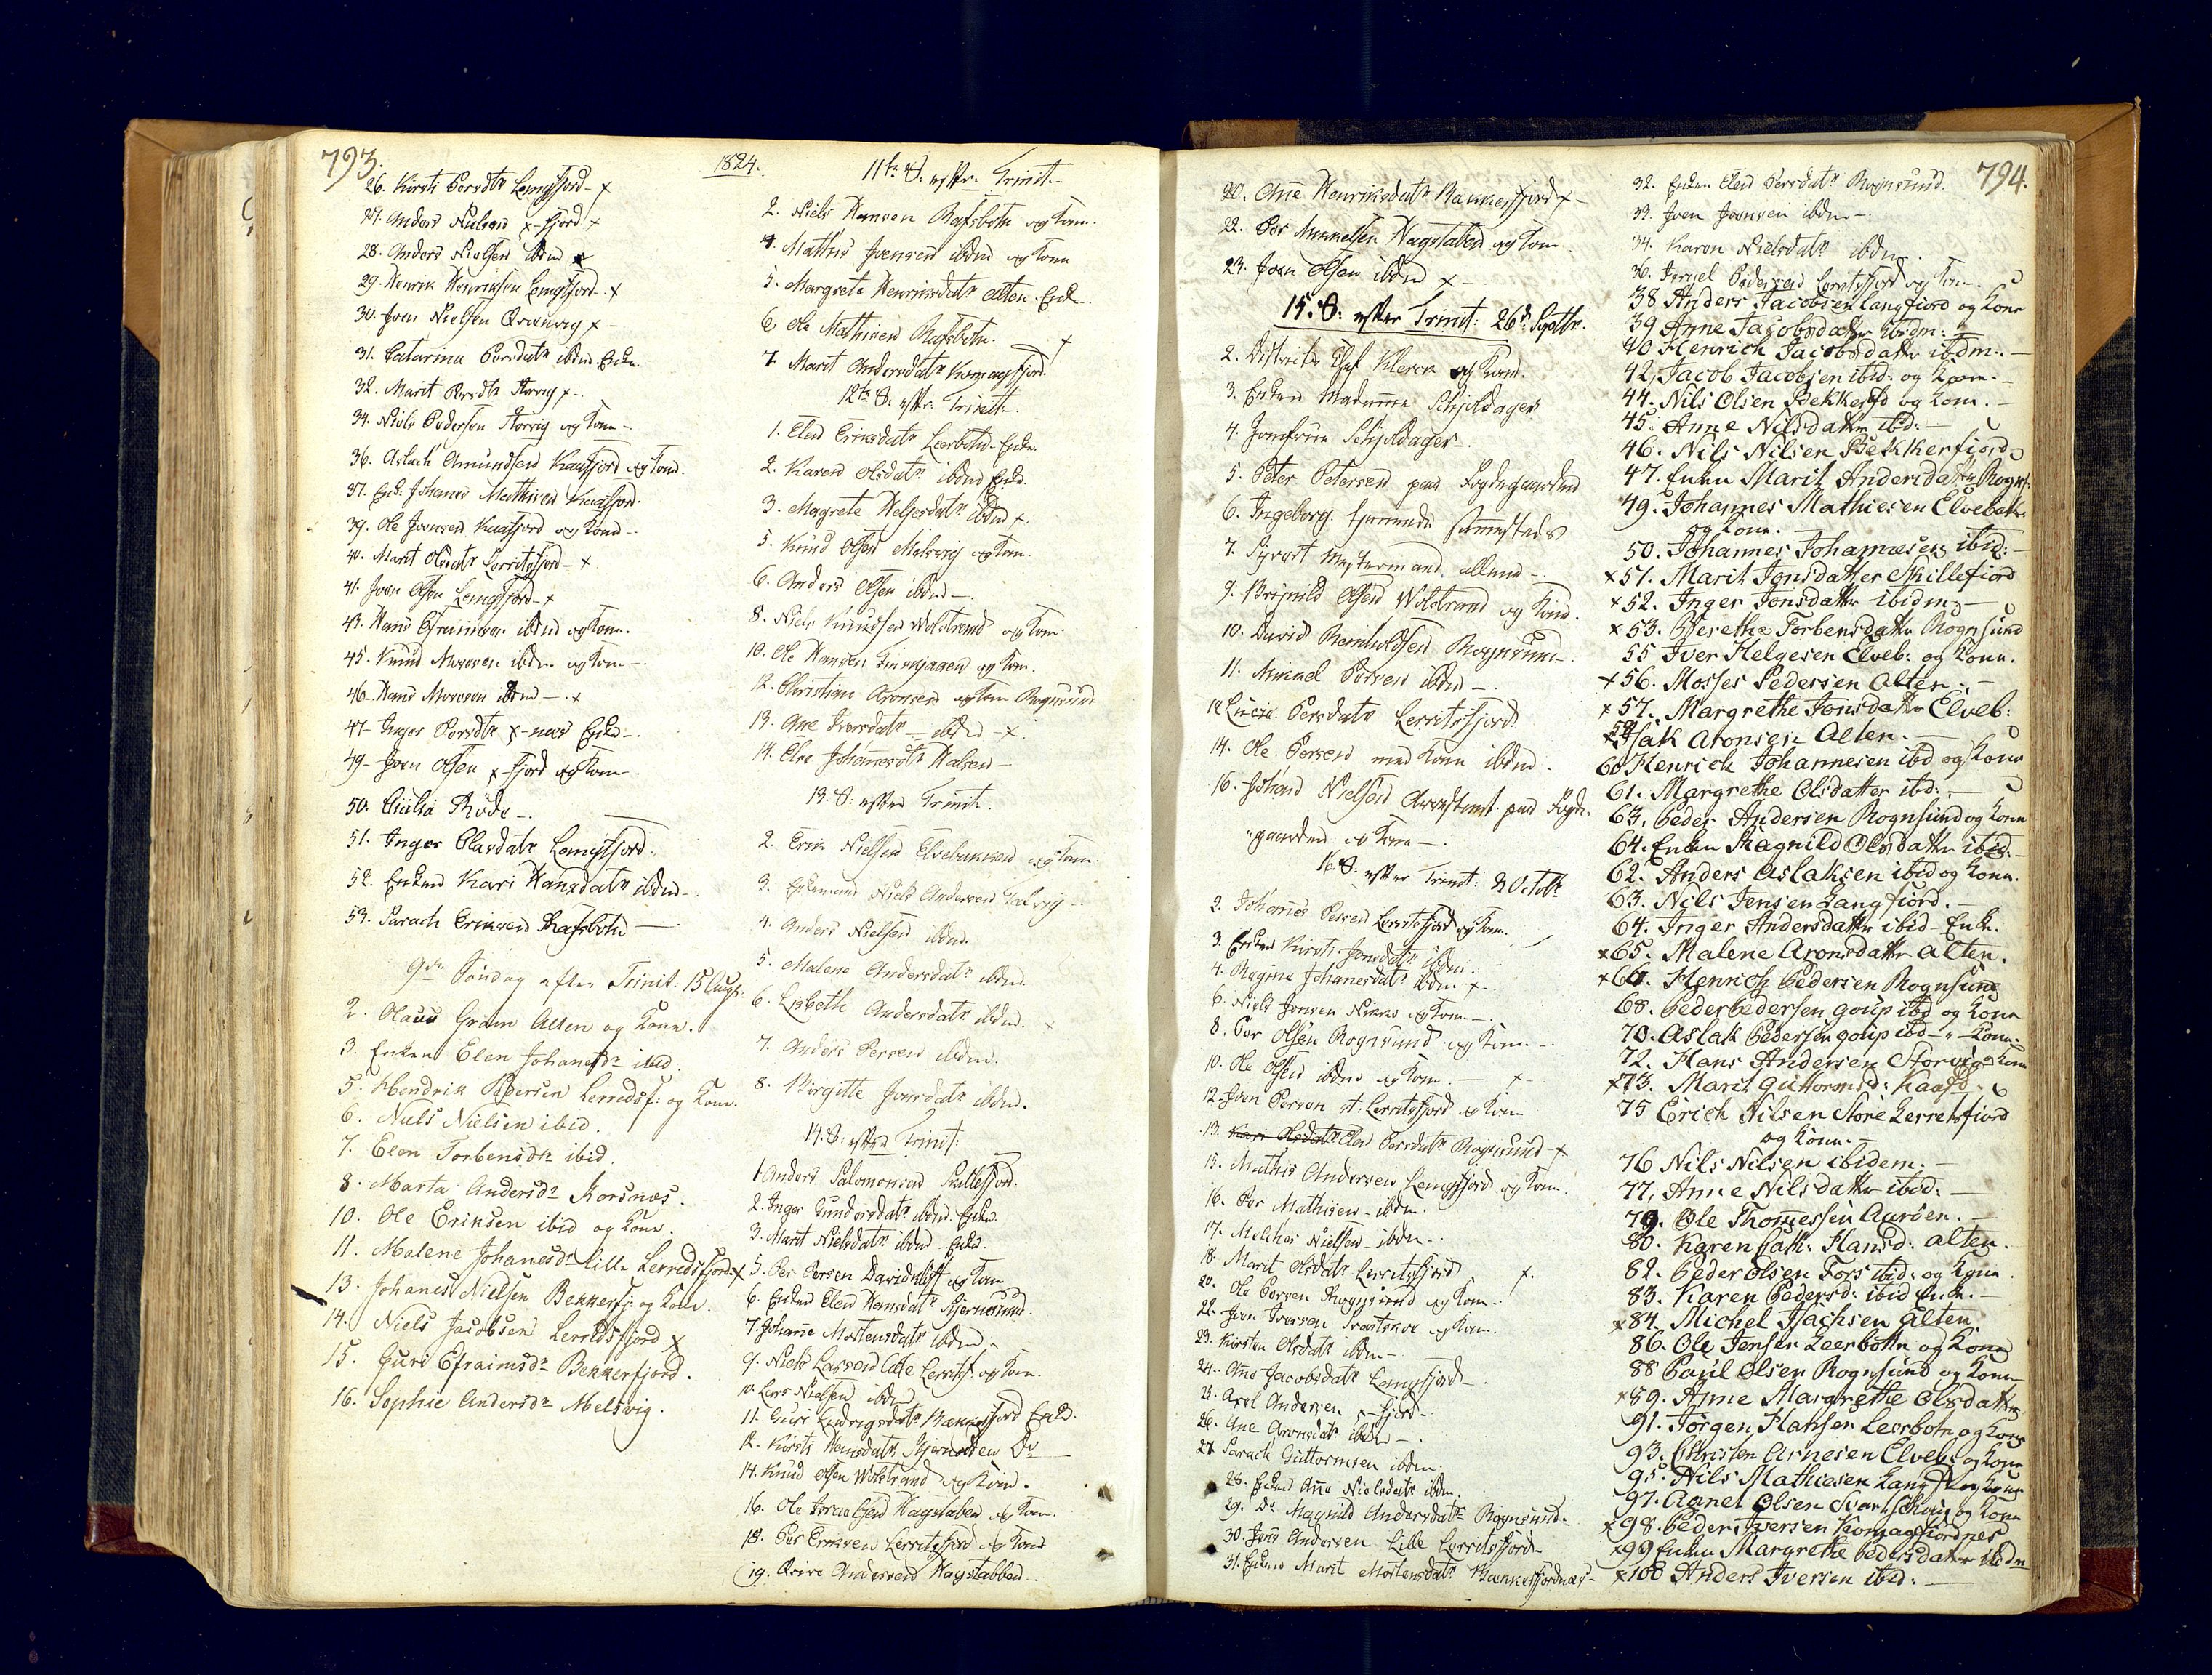 793.
26. Kirsti Persdtr Langfjord - x
27. Anders Nielsen x-fjord x
28. Anders Nielsen ibdm x
29. Henrik Henriksen Langfjord - x
30. Joen Nielsen Qvænvig x -
31. Catarina Persdatr ibdm Enke
32. Marit Persdtr Storvig x -
34. Niels Pedersen Storvig og Kone -
36. Aslach Amundsen Kaafjord og Kone.
37. Enk: Johanes Mathisen Kaafjord.
39. Ole Joensen Kaafjord og Kone -
40. Marit Olsdatr Lerritsfjord - x
41. Joen Olsen Langfjord - x
43. Hans Efraimsen ibdm og Kone.
45. Knud Mosesen ibdm og Kone -
46. Hans Mosesen ibdm - x
47. Inger Persdtr x-næs Enke -
49. Joen Olsen x-fjord og Kone -
50. Cicilia Rode -
51. Inger Clasdatr Langfjord.
52. Enken Kari Hansdatr ibdm -
53. Sarach Eriksen Rafsbotn -
9de Søndag efter Trinit. 15 Augs:
2. Olaus Gram Alten og Kone.
3. Enken Elen Johanesdr ibid.
5. Hendrik Pedersen Lerredsf: og Kone.
6. Niels Nielsen ibid.
7. Elen Torbensdr ibid.
8. Marta Andersdr Korsnæs.
10. Ole Eriksen ibid og Kone.
11. Malene Johanesdr lille Lerredsfjord x
13. Johanes Nielsen Bekkerfj: og Kone.
14. Niels Jacobsen Lerredsfjord x
15. Guri Efraimsdr Bekkerfjord.
16. Sophie Andersdr Melsvig.
1824.
11te S. efter Trinit.
2. Niels Hansen Rafsbotn og Kone.
4. Mathis Joensen ibdm og Kone
5. Margrete Henriksdatr Alten. Enke
6. Ole Mathisen Rafsbotn. x
7. Marit Andersdatr Komagfjord.
12te S. eftr. Trinit.
1. Elen Eriksdatr Leerbotn. Enke.
2. Karen Olsdatr ibdm Enke.
3. Magrete Helgesdatr ibdm x.
5. Knud Olsen Melsvig og Kone.
6. Anders Olsen ibdm -
8. Niels Knudsen Wolstrand og Kone
10. Ole Hansen Finnjageren og Kone.
12. Christian Aronsen og Kone Rognsund
13. Ane Iversdatr - ibdm - x.
14. Elen Johanesdtr Halsen -
13. S: efter Trinit.
2. Erik Nielsen Elvebakken og Kone.
3. Enkemand Niels Andersen Talvig -
4. Anders Nielsen ibdm.
5. Malene Andersdatr ibdm.
6. Lisbeth Andersdatr ibdm.
7. Anders Persen ibdm.
8. Birgitte Jonsdatr ibdm.
14. S: efter Trinit:
1 Anders Salomonsen Skillefjord.
2. Inger Gundersdatr ibdm. Enke.
3. Marit Nielsdatr ibdm. Enke.
5. Per Persen Davidklift og Kone
6. Enken Elen Hansdatr Stjernsund.
7. Johane Mortensdatr ibdm.
9. Niels Larsen Lille Lerritsf. og Kone.
10. Lars Nielsen ibdm
11. Guri Endrigsdatr Bækkerfjord Enke.
12. Kirsti Hansdatr Stjernøen Do
14. Knud Olsen Wolstrand og Kone.
16. Ole Israelsen Hagstaben og Kone.
18. Per Eriksen Lerritsfjord og Kone
19. Qvive Andersen Hagstabben
20. Ane Henriksdatr Bækkerfjord x -
22. Per Mikkelsen Hagstaben og Kone
23. Joen Olsen ibdm x -
15. S: efter Trinit: 26de Septbr.
2. Districts Chef Klerck og Kone.
3. Enken Madamme Schjeldager
4. Jomfrue Schjeldager -
5. Peter Petersen paa Fogdegaarden
6. Ingeborg tjenende sammesteds
7. Syvert Mestermand. allene -
9. Brynild Olsen Wolstrand og Kone.
10. David Reinholdsen Rognsund -
11. Mikkel Persen ibdm -
12 Lucia Persdatr Lerritsfjord
14. Ole Persen med Kone ibdm.
16. Johan Nielsen Arrestant paa Fogde-
gaarden og Kone -
16. S: efter Trinit: 3 Octobr
2. Johanes Persen Lerritsfjord og Kone.
3. Enken Kirsti Jonsdatr ibdm.
4. Regina Johanesdatr ibdm - x -
6. Niels Jonsen Nikko og Kone -
8. Per Olsen Rognsund og Kone -
10. Ole Olsen ibdm og Kone. - x -
12. Joen Person st: Lerritsfjord og Kone
13. Kari Olsdatr Elen Persdatr Rognsund - x
15. Mathis Andersen Langfjord og Kone.
16. Per Mathisen - ibdm.
17. Melcher Nielsen - ibdm -
18. Marit Olsdatr Lerritsfjord x.
20. Ole Persen Rognsund og Kone -
22. Joen Iversen Svartskoe og Kone.
23. Kirsten Olsdatr ibdm -
24. Ane Jacobsdatr Langfjord -
25. Axel Andersen x-fjord -
26. Ane Aronsdatr ibdm -
27. Sarach Guttormsen ibdm.
28. Enken Ane Nielsdatr ibdm.
29. Do Magnild Andersdatr Rognsund.
30. Jens Andersen Lille Lerritsfjord -
31. Enken Marit Mortensdatr Bækkerfjordnæs -
794.
32. Enken Elen Persdatr Rognsund.
33. Joen Joensen ibdm -
34. Karen Nielsdatr ibdm.
36. Israel Pedersen Lerritsfjord og Kone -
38 Anders Jacobsen Langfjord og Kone
39 Anne Jacobsdatter ibidm: -
40 Henrich Jacobsdatter ibdm: -
42, Jacob Jacobsen ibid: og Kone. -
44. Nils Olsen Bekkerfd og Kone. -
45. Anne Nilsdatter ibid: -
46. Nils Nilsen Bekkerfiord
47. Enke Marit Andersdatter Rogns:
49. Johannes Mathiesen Elvebak:
og Kone. -
50. Johannes Johannesen ibid: -
x 51. Marit Jonsdatter Skillefiord
x 52. Inger Jonsdatter ibidm. -
x 53. Berethe Torbensdatter Rognsund
55 Iver Helgesen Elveb: og Kone.
x 56. Mosses Pedersen Alten. -
x 57. Margrethe Jonsdatter Elveb:
x 58 Isak Aronsen Alten. -
60 Henrich Johannesen ibd og Kone
61. Margrethe Olsdatter ibd: -
63. Peder Andersen Rognsund og Kone
64. Enke Ragnild Olsdatter ibid. -
62. Anders Aslaksen ibid og Kone.
63. Nils Jensen Langfiord. -
64. Inger Andersdatter ibid - Enke.
x 65. Malene Aronsdatter Alten.
x 66. Henrich Pedersen Rognsund
68. Peder Pedersen Goup ibd og Kone
70. Aslak Pedersen Goup ibd - " - Kone.
72. Hans Andersen Storvig og Kone
x 73. Marit Guttormsd: Kaafd.
75 Erich Nilsen Store Lerretsfiord
og Kone. -
76 Nils Nilsen ibidem: -
77, Anne Nilsdatter ibid: -
79. Ole Thomessen Aarøen. -
80. Karen Cath: Hansd: Alten.
82. Peder Olsen Fors ibid: og Kone.
83. Karen Pedersd: ibid Enke. -
x 84. Michel Isachsen Alten
86. Ole Jensen Leerbotn og Kone
88 Paul Olsen Rognsund og Kone
x 89. Anne Margrethe Olsdatter
91. Jørgen Hansen Leerbotn og Kone
93. Christen Arnesen Elveb: og Kone
95. Nils Mathiesen Langf: og Kone
97. Agnel Olsen og Kone
x 98. Peder Iversen Komagfiordnes
x 99 Enke Margrethe Pedersdatter ibdm
x 100 Anders Iversen ibid: -